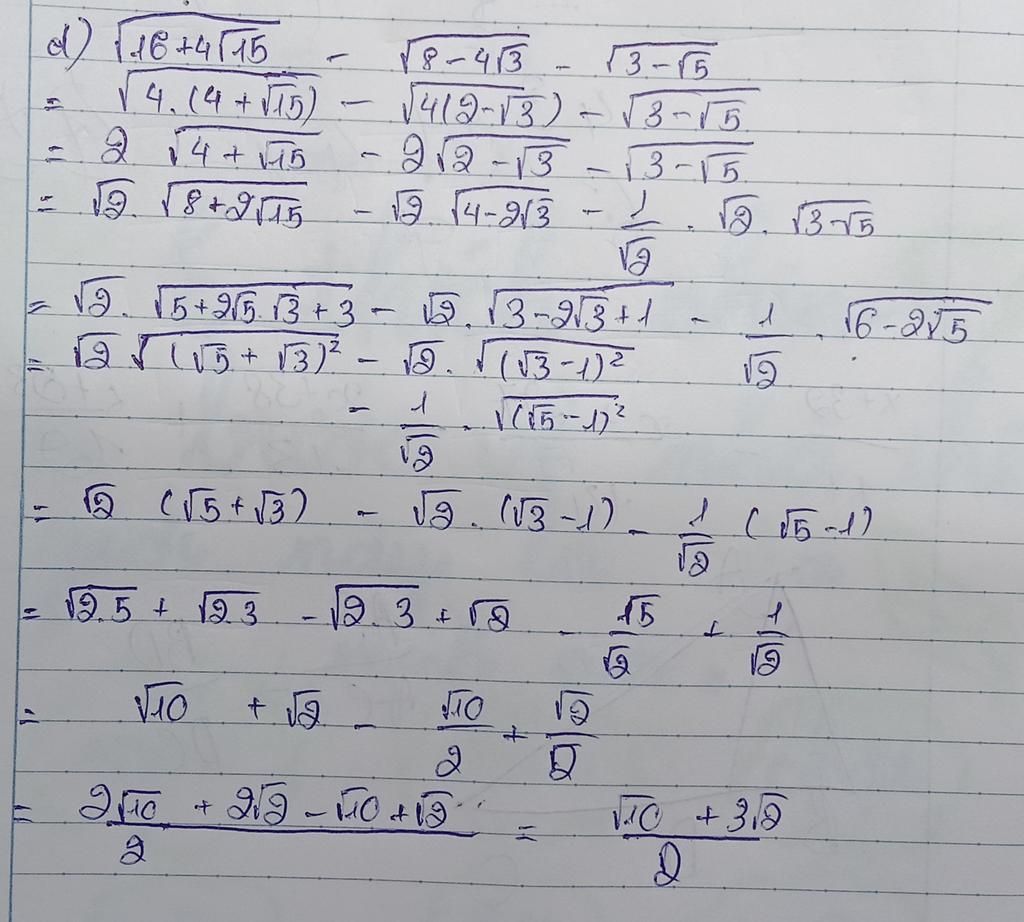 d) √(16+4√15) - √(8-4√3) - √(3-√5)
= √(4.(4+√15)) - √(4(2-√3)) - √(3-√5)
= 2 √(4+√15) - 2√(2-√3) - √(3-√5)
= √2. √(8+2√15) - √2. √(4-2√3) - 1/√2 . √2. √(3-√5)
= √2. √(5+2√5.√3+3) - √2. √(3-2√3+1) - 1/√2 . √(6-2√5)
= √2 √((√5+√3)²) - √2. √((√3-1)²)
- 1/√2 . √((√5-1)²)
= √2 (√5+√3) - √2. (√3-1) - 1/√2 (√5-1)
= √(2.5) + √(2.3) - √(2.3) + √2 - √5/√2 + 1/√2
= √10 + √2 - √10/2 + √2/2
= (2√10 + 2√2 - √10 + √2)/2 = (√10 + 3√2)/2